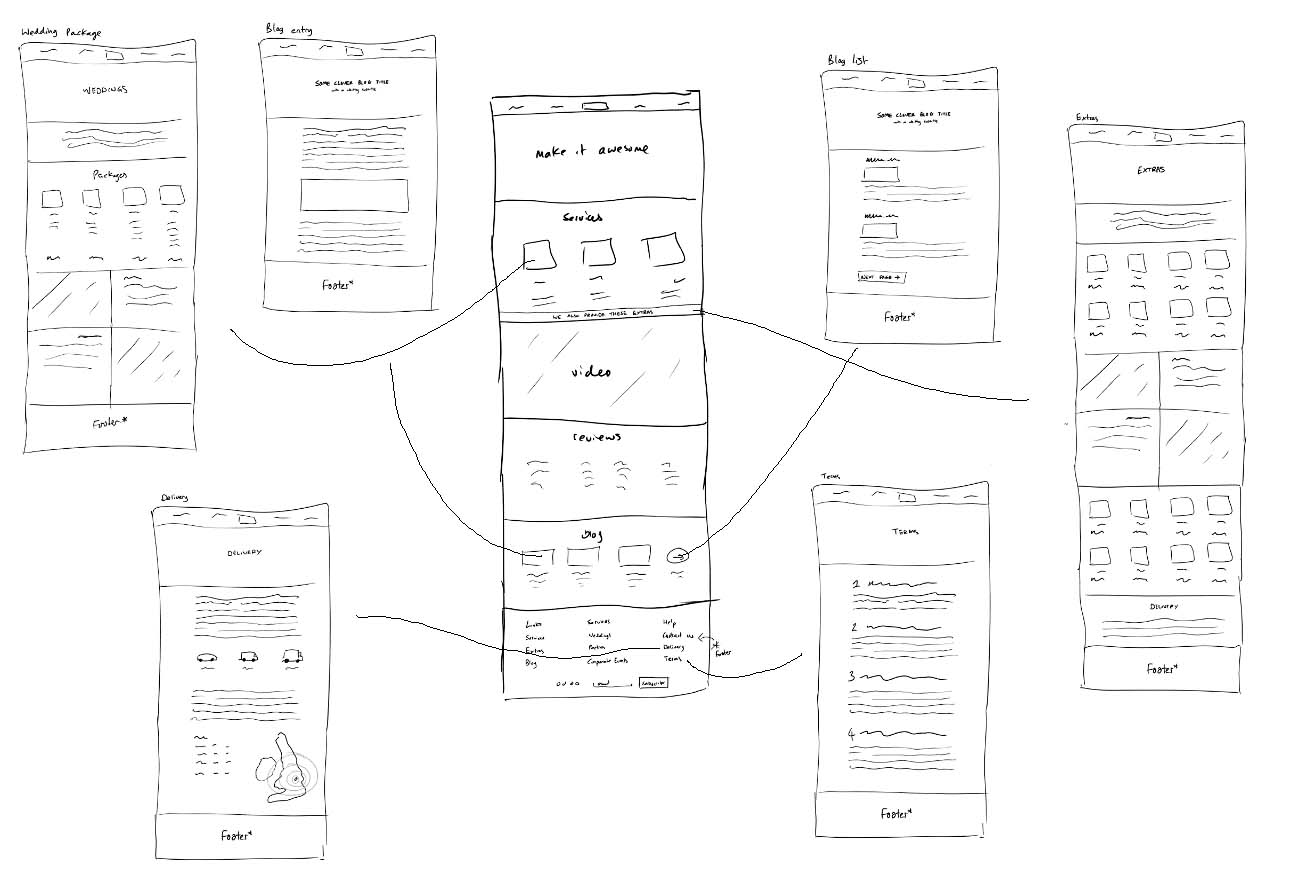 Wedding Package
WEDDINGS
Packages
Footer*
Blog entry
SOME CLEVER BLOG TITLE
Footer*
make it awesome
Services
WE ALSO PROVIDE THESE EXTRAS
video
reviews
blog
Links
Services
Extras
Blog
Services
Weddings
Parties
Corporate Events
Help
Contact us
Delivery
Terms
Subscribe
* Footer
Blog list
SOME CLEVER BLOG TITLE
NEXT PAGE →
Footer*
Extras
EXTRAS
DELIVERY
Footer*
Delivery
DELIVERY
Footer*
Terms
TERMS
1
2
3
4
Footer*